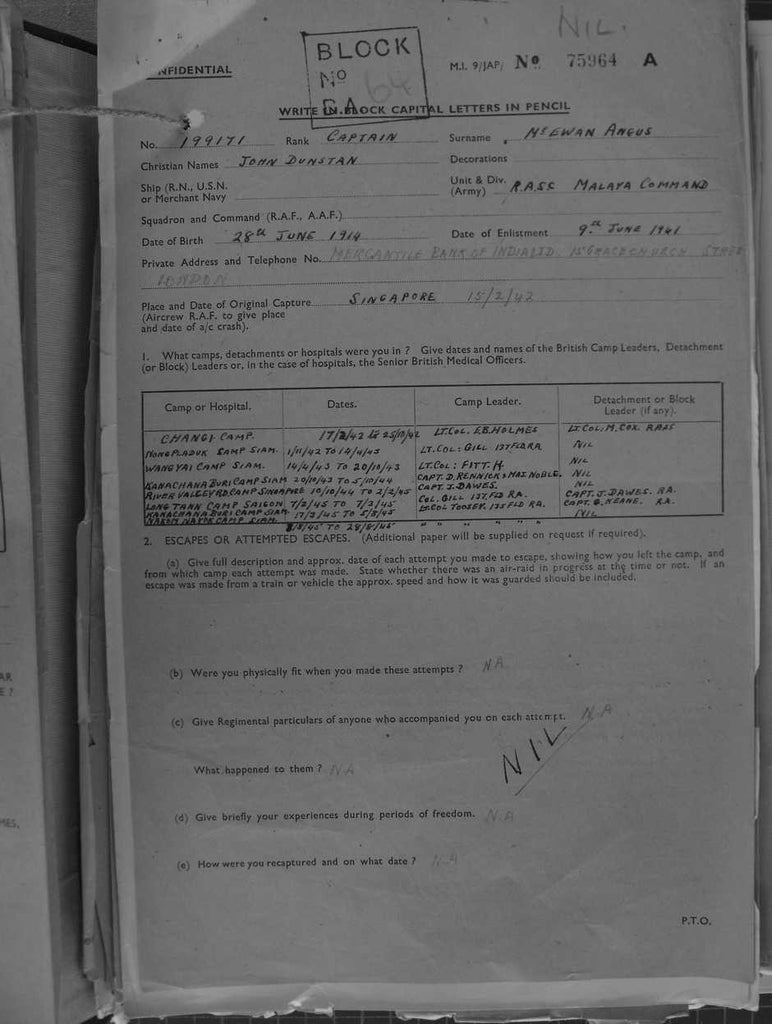 NIL.
BLOCK
No 64
CA
NFIDENTIAL
M.I. 9/JAP/ No 75964 A
WRITE IN BLOCK CAPITAL LETTERS IN PENCIL
No. 199171 Rank CAPTAIN Surname McEWAN ANGUS
Christian Names JOHN DUNSTAN Decorations
Ship (R.N., U.S.N. or Merchant Navy
Unit & Div. (Army) R.A.S.C MALAYA COMMAND
Squadron and Command (R.A.F., A.A.F.)
Date of Birth 28th JUNE 1914 Date of Enlistment 9th JUNE 1941
Private Address and Telephone No. MERCANTILE BANK OF INDIA LTD. 15 GRACECHURCH STREET
LONDON
Place and Date of Original Capture SINGAPORE 15/2/42
(Aircrew R.A.F. to give place
and date of a/c crash).
1. What camps, detachments or hospitals were you in ? Give dates and names of the British Camp Leaders, Detachment
(or Block) Leaders or, in the case of hospitals, the Senior British Medical Officers.
Camp or Hospital. Dates. Camp Leader. Detachment or Block Leader (if any).
CHANGI CAMP. 17/2/42 to 25/10/42 LT. COL. E.B. HOLMES LT. COL. M. COX. RASC
NONG PLADUK CAMP SIAM. 1/11/42 TO 14/4/43 LT. COL: GILL 137 FLD RA. NIL
WANGYAI CAMP SIAM. 14/4/43 TO 20/10/43 LT. COL: FITT. H. NIL
KANACHANABURI CAMP SIAM 20/10/43 TO 5/10/44 CAPT. D. RENNICK & MAJ. NOBLE. NIL
RIVER VALLEY RD. CAMP SINGAPORE 10/10/44 TO 2/2/45 CAPT. J. DAWES. NIL
LONG TANN CAMP SAIGON 7/2/45 TO 7/3/45 COL. GILL 137. FLD RA. CAPT. J. DAWES. RA.
KANACHANABURI CAMP SIAM. TO 5/8/45 Lt. COL TOOSEY. 135 FLD RA. CAPT. G. KEANE. RA.
NAKOM NAYOK CAMP SIAM. 8/8/45 TO 28/8/45 " " " " NIL
2. ESCAPES OR ATTEMPTED ESCAPES. (Additional paper will be supplied on request if required).
(a) Give full description and approx. date of each attempt you made to escape, showing how you left the camp, and
from which camp each attempt was made. State whether there was an air-raid in progress at the time or not. If an
escape was made from a train or vehicle the approx. speed and how it was guarded should be included.
(b) Were you physically fit when you made these attempts ? NA
(c) Give Regimental particulars of anyone who accompanied you on each attempt. NA
NIL
What happened to them ? NA
(d) Give briefly your experiences during periods of freedom. N.A
(e) How were you recaptured and on what date ? N.A
P.T.O.
AR
E ?
MES,